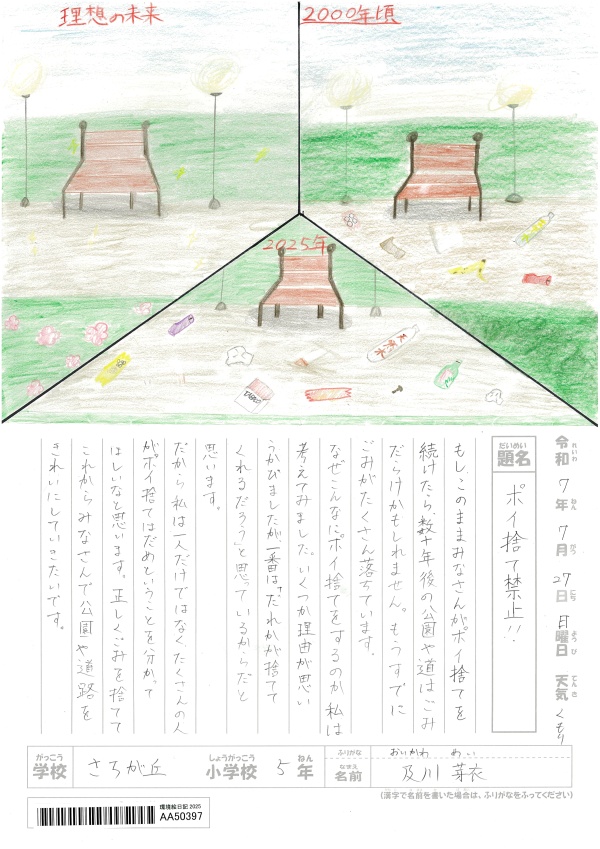 理想の未来
2000年頃
2025年
天然水
令和7年7月27日日曜日 天気くもり
れいわ ねん がつ にち ようび てんき
だいめい
題名
ポイ捨て禁止!!
もし、このままみなさんがポイ捨てを
続けたら、数十年後の公園や道はごみ
だらけかもしれません。もうすでに
ごみがたくさん落ちています。
なぜこんなにポイ捨てをするのか私は
考えてみました。いくつか理由が思い
うかびましたが、一番は「だれかが捨てて
くれるだろう」と思っているからだと
思います。
だから私は一人だけではなくたくさんの人
がポイ捨てはだめということを分かって
ほしいなと思います。正しくごみを捨てて
これからみなさんで公園や道路を
きれいにしていきたいです。
がっこう
学校
さちが丘
しょうがっこう
小学校
5
ねん
年
ふりがな
おいかわ めい
なまえ
名前
及川 芽衣
(漢字で名前を書いた場合は、ふりがなをふってください)
環境絵日記 2025
AA50397